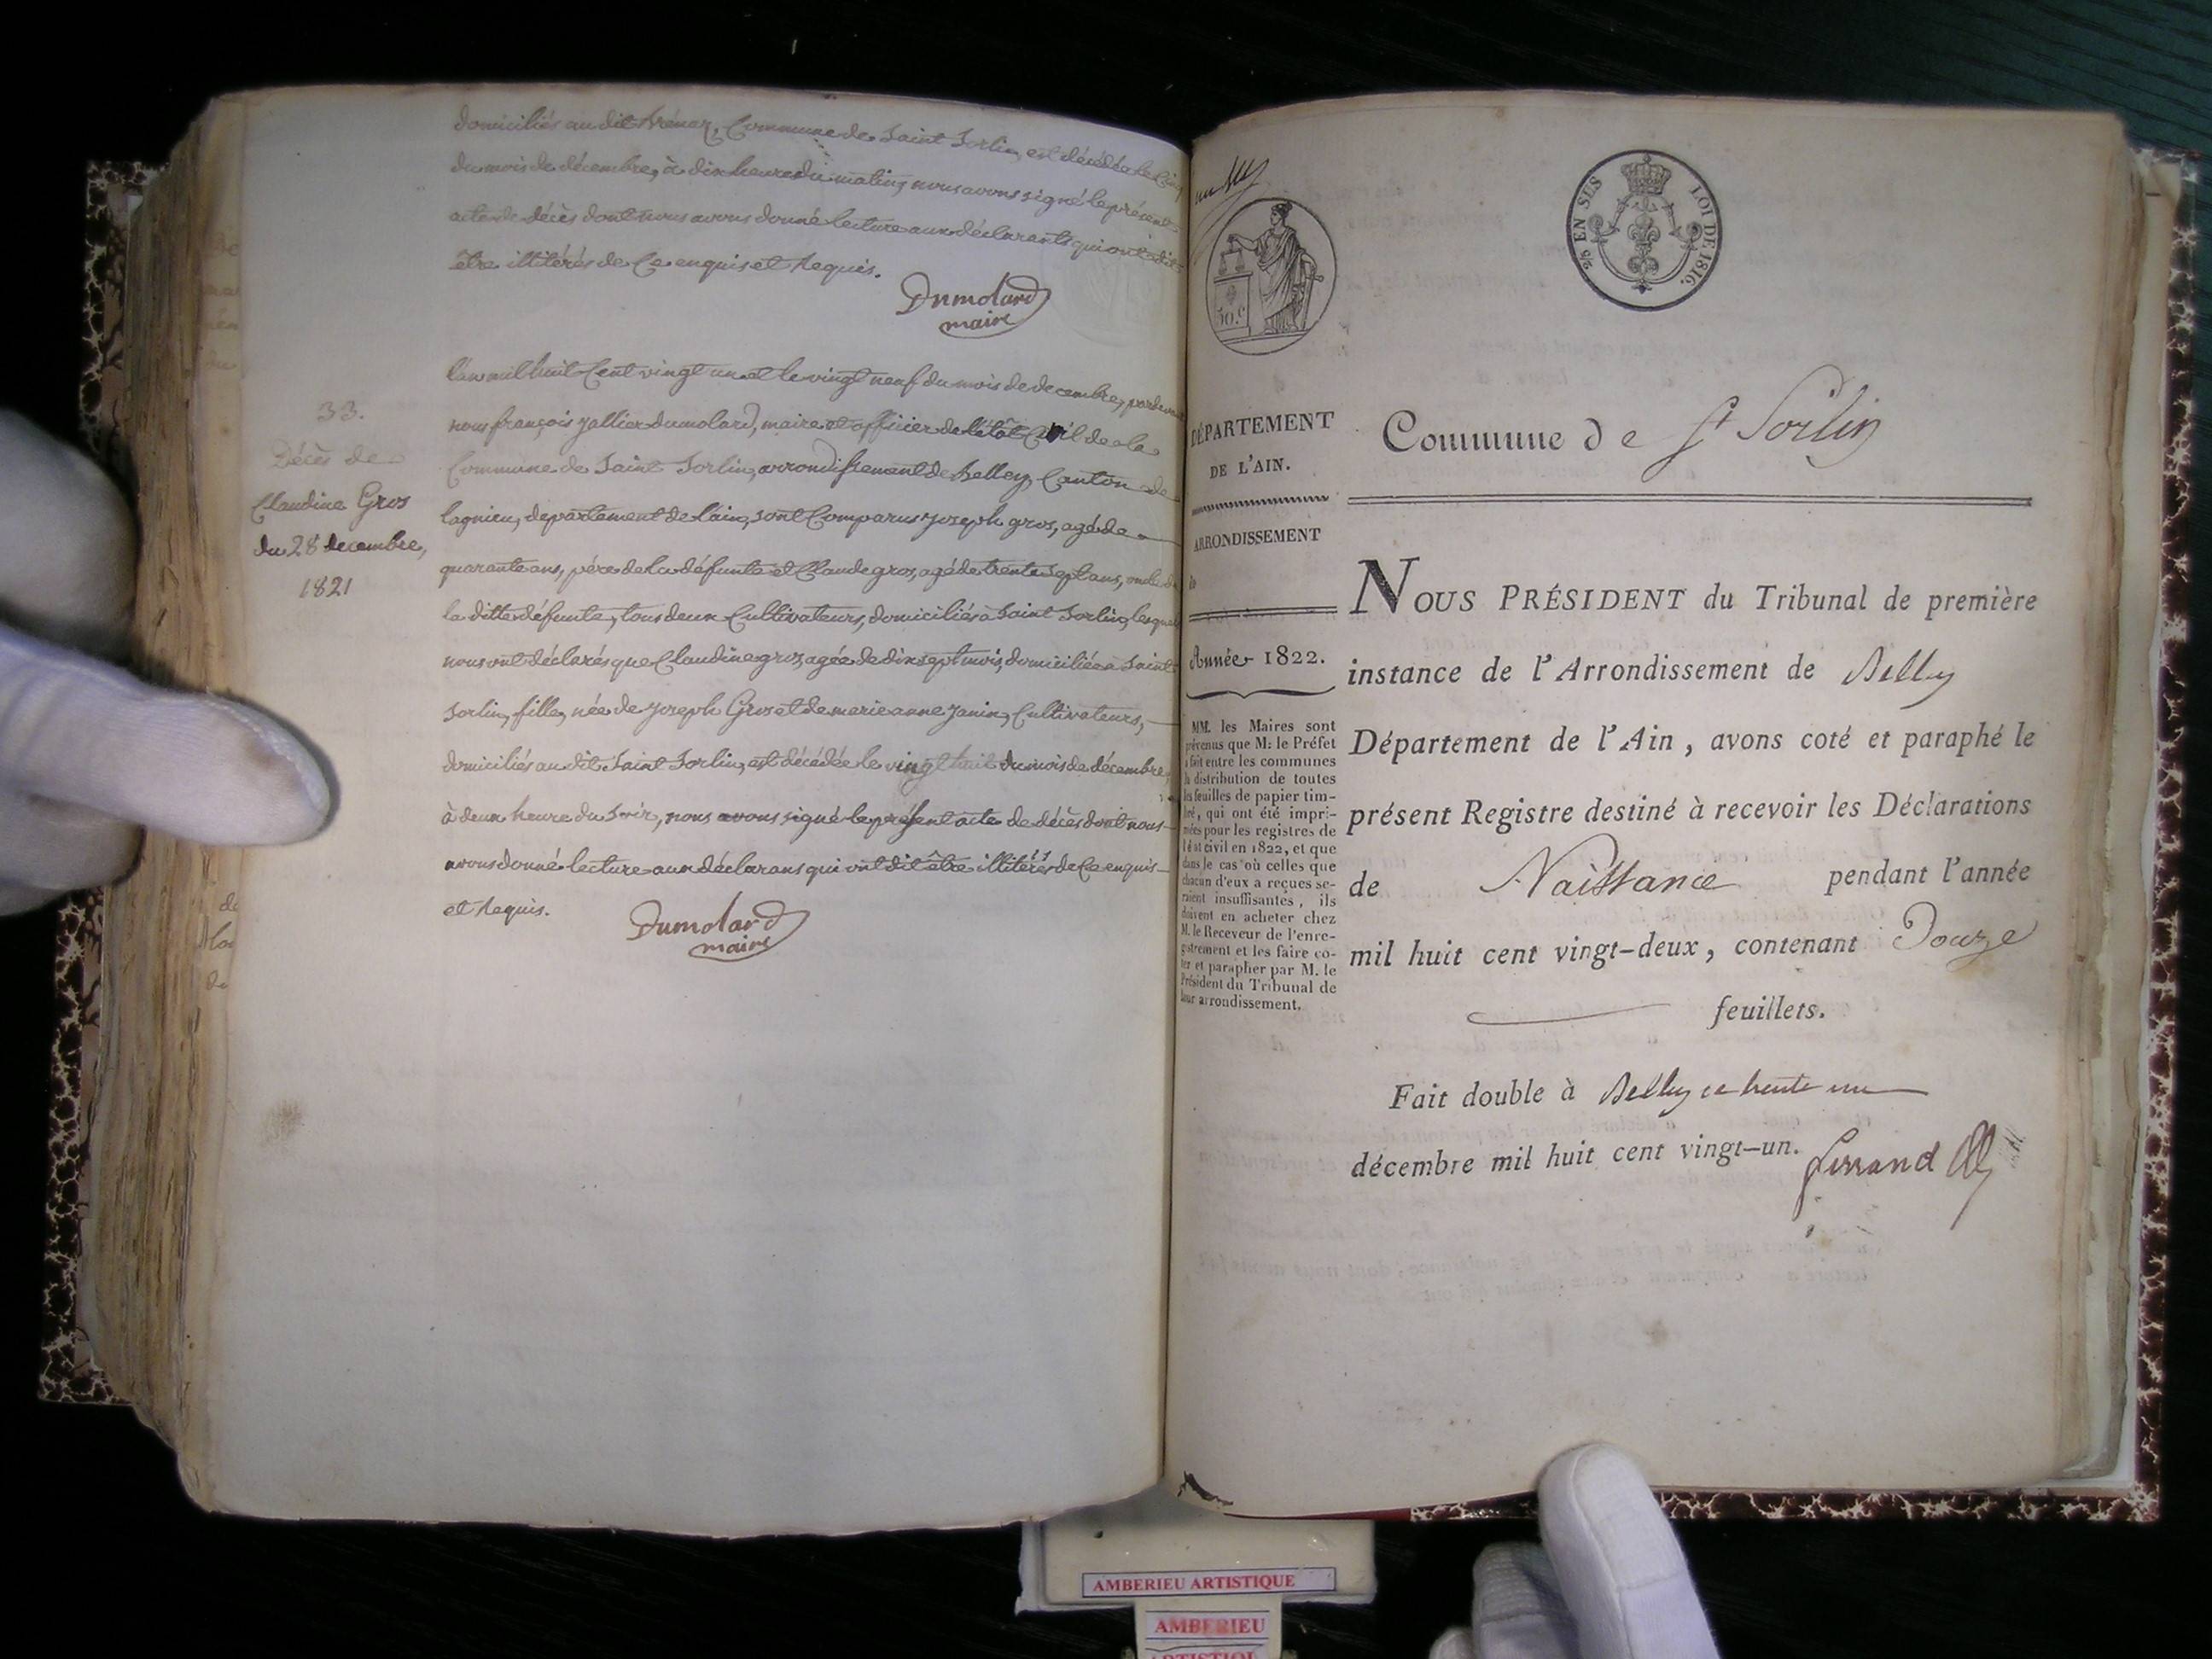 domiciliés au dit Frénaz, Commune de Saint Sorlin, est décédée le Cinq
du mois de décembre, à dix heures du matin, nous avons signé le présent
acte de décès dont nous avons donné lecture aux déclarants qui ont dit
être illitérés de Ce enquis et Requis.
Dumolard
maire
33.
Décès de
Claudine Gros
du 28 decembre,
1821
l'an mil huit Cent vingt un et le vingt neuf du mois de decembre, pardevant
nous françois yallier dumolard, maire et officier de l'étât Civil de la
Commune de Saint Sorlin, arrondissement de Belley, Canton de
lagnieu, departement de l'ain, sont Comparus joseph gros, agé de
quarante ans, père de la défunte et Claude gros, agé de trente sept ans, oncle de
la ditte défunte, tous deux Cultivateurs, domiciliés à Saint Sorlin, lesquels
nous ont déclarés que Claudine gros, agée de dix sept mois, domiciliée à Saint
Sorlin, fille, née de joseph Gros et de marie anne Janin, Cultivateurs,
domiciliés au dit Saint Sorlin, est décédée le vingt huit du mois de décembre,
à deux heure du Soir, nous avons signé le présent acte de décès dont nous
avons donné lecture aux déclarans qui ont dit être illitérés de Ce enquis
et Requis.
Dumolard
maire
50 C.
EN SUS
LOI DE 1816.
DÉPARTEMENT
DE L'AIN.
ARRONDISSEMENT
Année 1822.
MM. les Maires sont
prévenus que M. le Préfet
a fait entre les communes
la distribution de toutes
les feuilles de papier tim-
bré, qui ont été impri-
mées pour les registres de
l'état civil en 1822, et que
dans le cas où celles que
chacun d'eux a reçues se-
raient insuffisantes, ils
doivent en acheter chez
M. le Receveur de l'enre-
gistrement et les faire co-
ter et parapher par M. le
Président du Tribunal de
leur arrondissement.
Commune de St Sorlin
NOUS PRÉSIDENT du Tribunal de première
instance de l'Arrondissement de Belley
Département de l'Ain, avons coté et paraphé le
présent Registre destiné à recevoir les Déclarations
de Naissance pendant l'année
mil huit cent vingt-deux, contenant Douze
feuillets.
Fait double à Belley ce trente un
décembre mil huit cent vingt-un.
AMBERIEU ARTISTIQUE
AMBERIEU
ARTISTIQUE